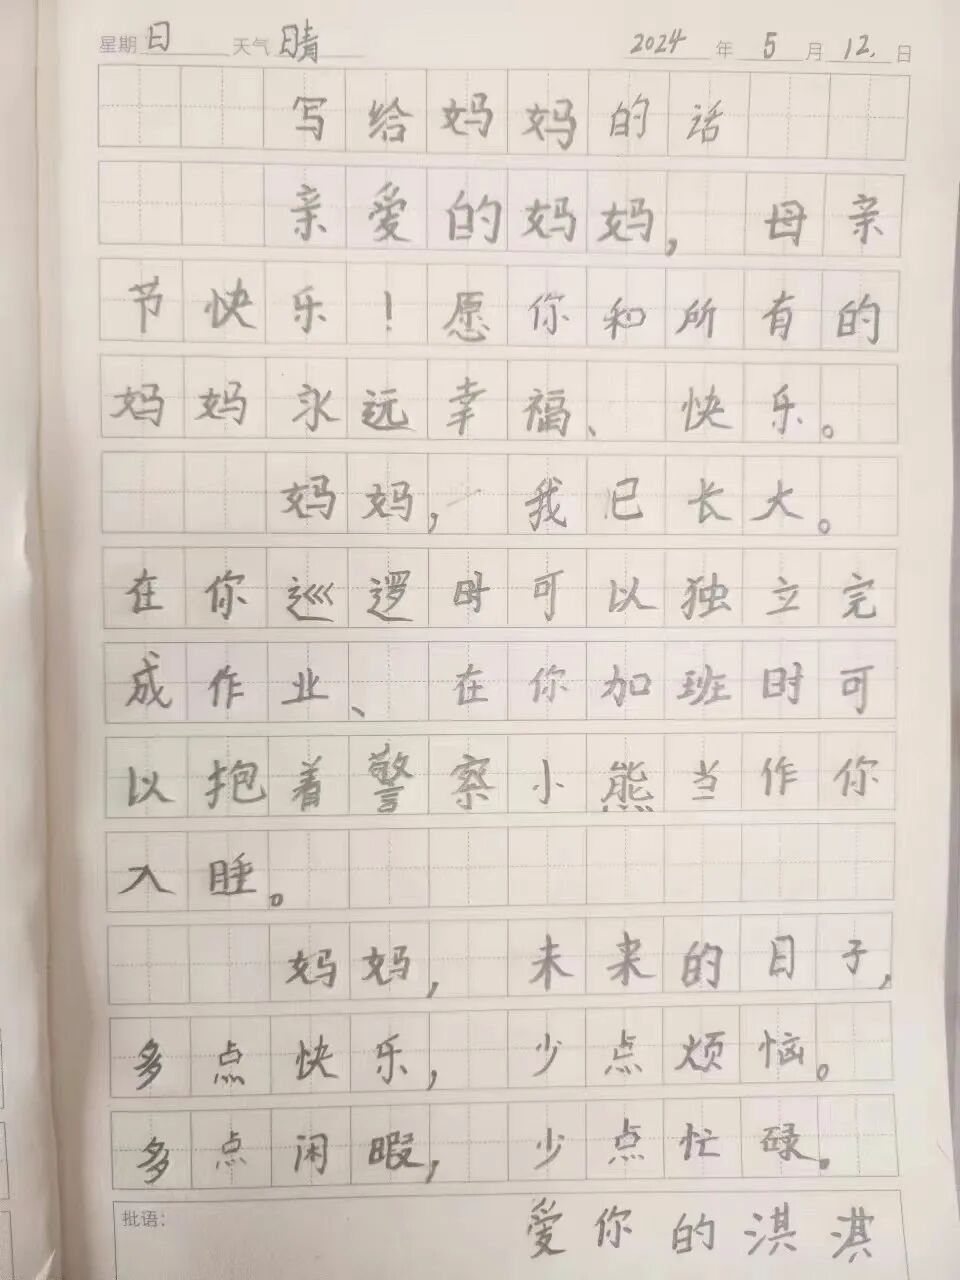 星期 日 天气 晴 2024 年 5 月 12. 日
写给妈妈的话
亲爱的妈妈，母亲
节快乐！愿你和所有的
妈妈永远幸福、快乐。
妈妈，我已长大。
在你巡逻时可以独立完
成作业、在你加班时可
以抱着警察小熊当作你
入睡。
妈妈，未来的日子，
多点快乐，少点烦恼。
多点闲暇，少点忙碌。
批语：爱你的淇淇